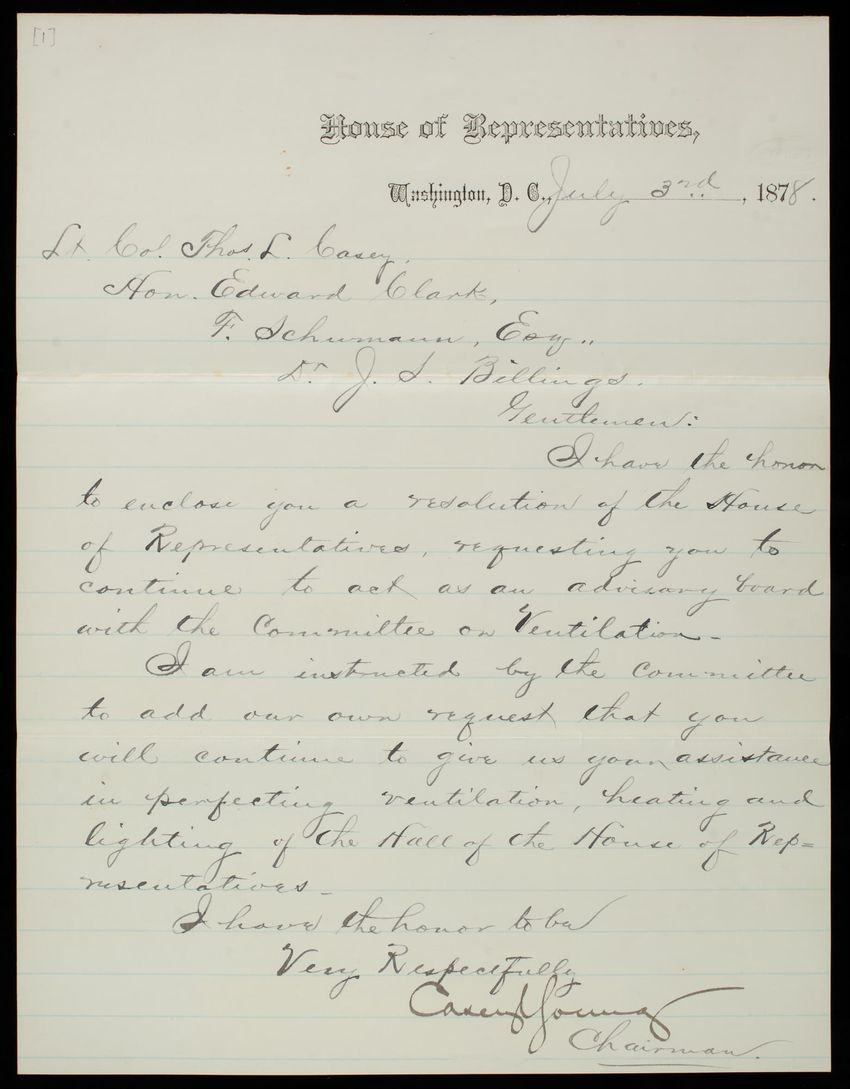 [1]
House of Representatives,
Washington, D. C., July 3rd, 1878.
Lt. Col. Thos. L. Casey,
Hon. Edward Clark,
F. Schumann, Esq.,
Dr. J. S. Billings.
Gentlemen:
I have the honor
to enclose you a resolution of the House
of Representatives, requesting you to
continue to act as an advisory board
with the Committee on Ventilation-
I am instructed by the Committee
to add our own request that you
will continue to give us your assistance
in perfecting ventilation, heating and
lighting of the Hall of the House of Rep=
resentatives-
I have the honor to be
Very Respectfully
Casey Young
Chairman.